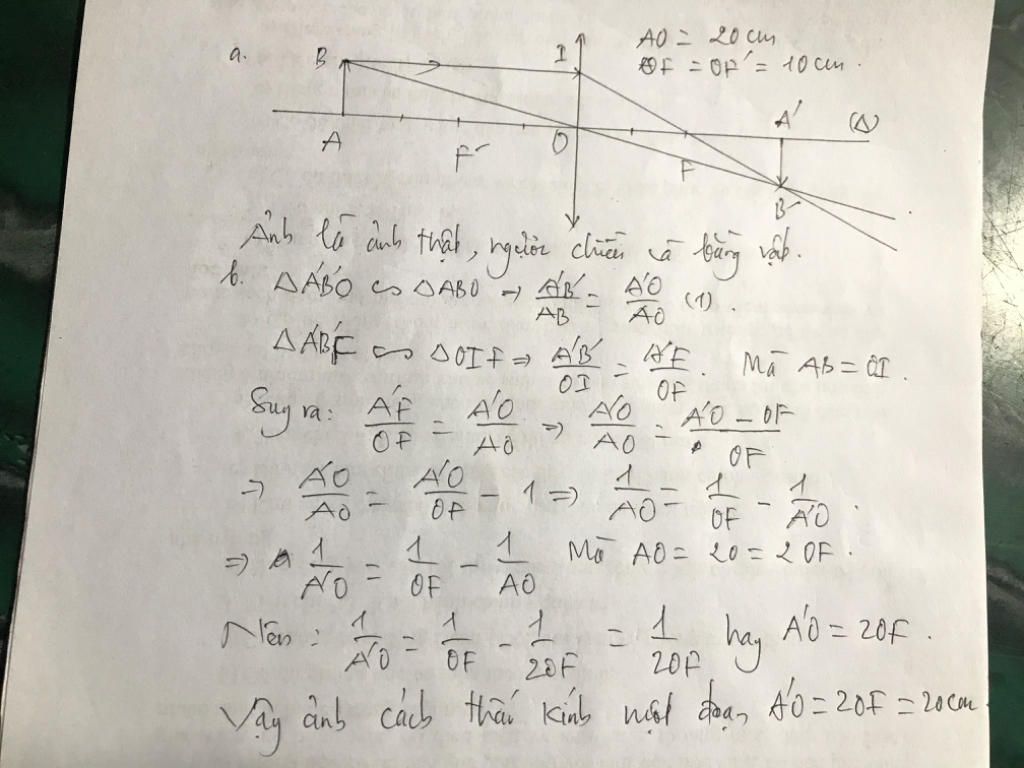 a. B I AO = 20 cm
OF = OF' = 10 cm.
A F' O F A' (Δ)
B'
Ảnh là ảnh thật, ngược chiều và bằng vật.
b. ΔA'B'O ∽ ΔABO → A'B'/AB = A'O/AO (1).
ΔA'B'F ∽ ΔOIF ⇒ A'B'/OI = A'F/OF. Mà AB = OI.
Suy ra: A'F/OF = A'O/AO ⇒ A'O/AO = A'O - OF/OF
→ A'O/AO = A'O/OF - 1 ⇒ 1/AO = 1/OF - 1/A'O.
⇒ 1/A'O = 1/OF - 1/AO Mà AO = 20 = 2OF.
Nên: 1/A'O = 1/OF - 1/2OF = 1/2OF hay A'O = 2OF.
Vậy ảnh cách thấu kính một đoạn A'O = 2OF = 20 cm